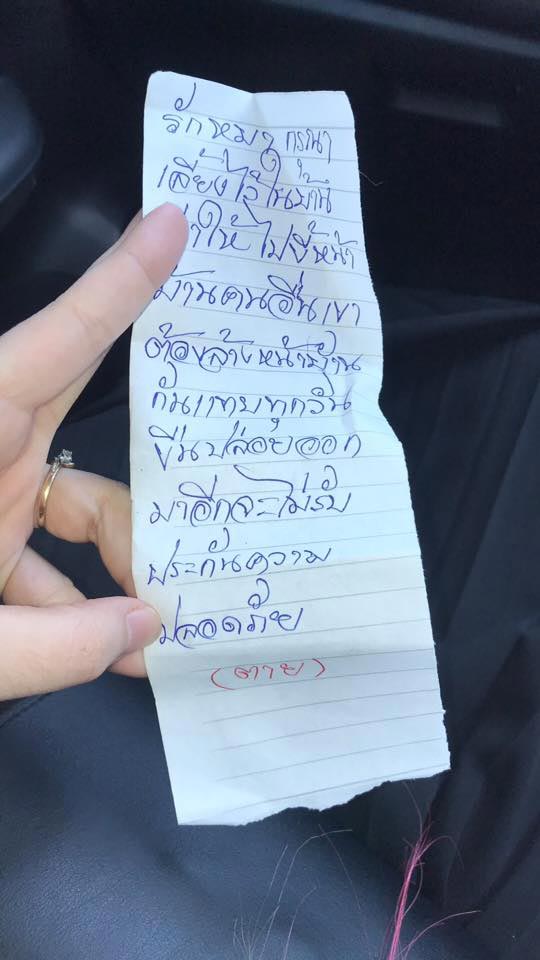 รักหมา กรุณา
เลี้ยงไว้ในบ้าน
อย่าให้ไปขี้หน้า
บ้านคนอื่นเขา
ต้องล้างหน้าบ้าน
กันแทบทุกวัน
ขืนปล่อยออก
มาอีกจะไม่รับ
ประกันความ
ปลอดภัย
(ตาย)